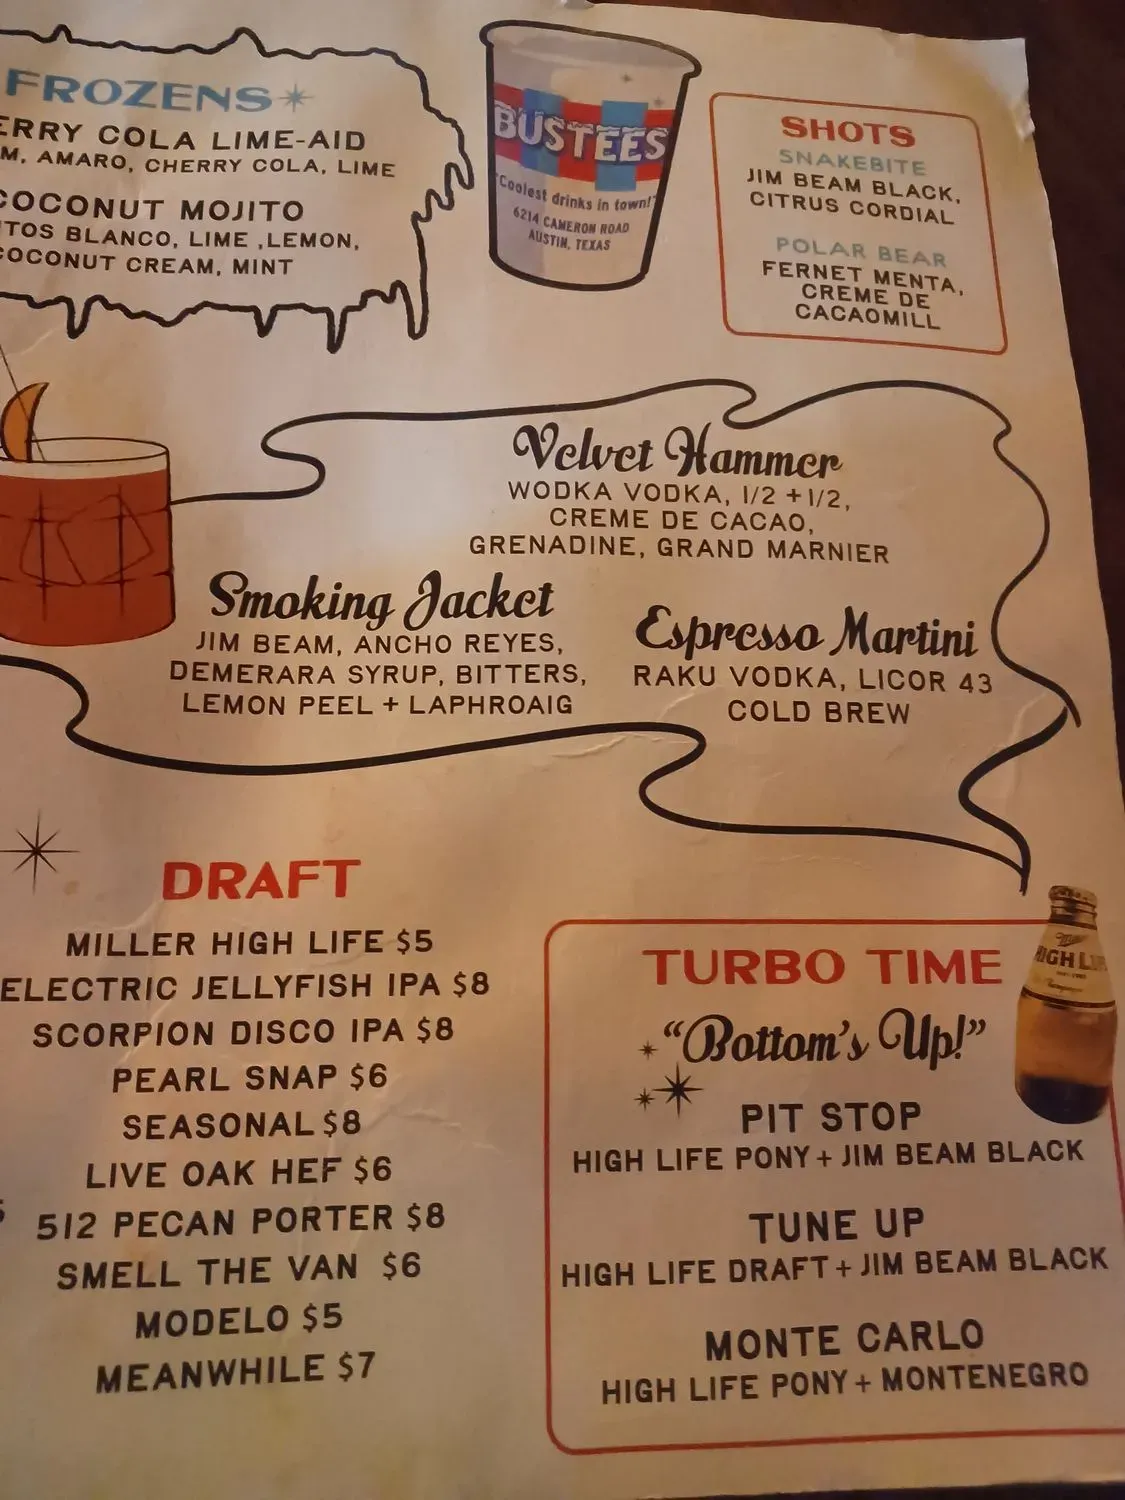 FROZENS
ERRY COLA LIME-AID
M, AMARO, CHERRY COLA, LIME
COCONUT MOJITO
TOS BLANCO, LIME ,LEMON,
COCONUT CREAM, MINT
BUSTEES
"Coolest drinks in town!"
6214 CAMERON ROAD
AUSTIN, TEXAS
SHOTS
SNAKEBITE
JIM BEAM BLACK,
CITRUS CORDIAL
POLAR BEAR
FERNET MENTA,
CREME DE
CACAOMILL
Velvet Hammer
WODKA VODKA, 1/2 + 1/2,
CREME DE CACAO,
GRENADINE, GRAND MARNIER
Smoking Jacket
JIM BEAM, ANCHO REYES,
DEMERARA SYRUP, BITTERS,
LEMON PEEL + LAPHROAIG
Espresso Martini
RAKU VODKA, LICOR 43
COLD BREW
DRAFT
MILLER HIGH LIFE $5
ELECTRIC JELLYFISH IPA $8
SCORPION DISCO IPA $8
PEARL SNAP $6
SEASONAL $8
LIVE OAK HEF $6
512 PECAN PORTER $8
SMELL THE VAN $6
MODELO $5
MEANWHILE $7
TURBO TIME
"Bottom's Up!"
PIT STOP
HIGH LIFE PONY + JIM BEAM BLACK
TUNE UP
HIGH LIFE DRAFT + JIM BEAM BLACK
MONTE CARLO
HIGH LIFE PONY + MONTENEGRO
Miller
HIGH LIFE